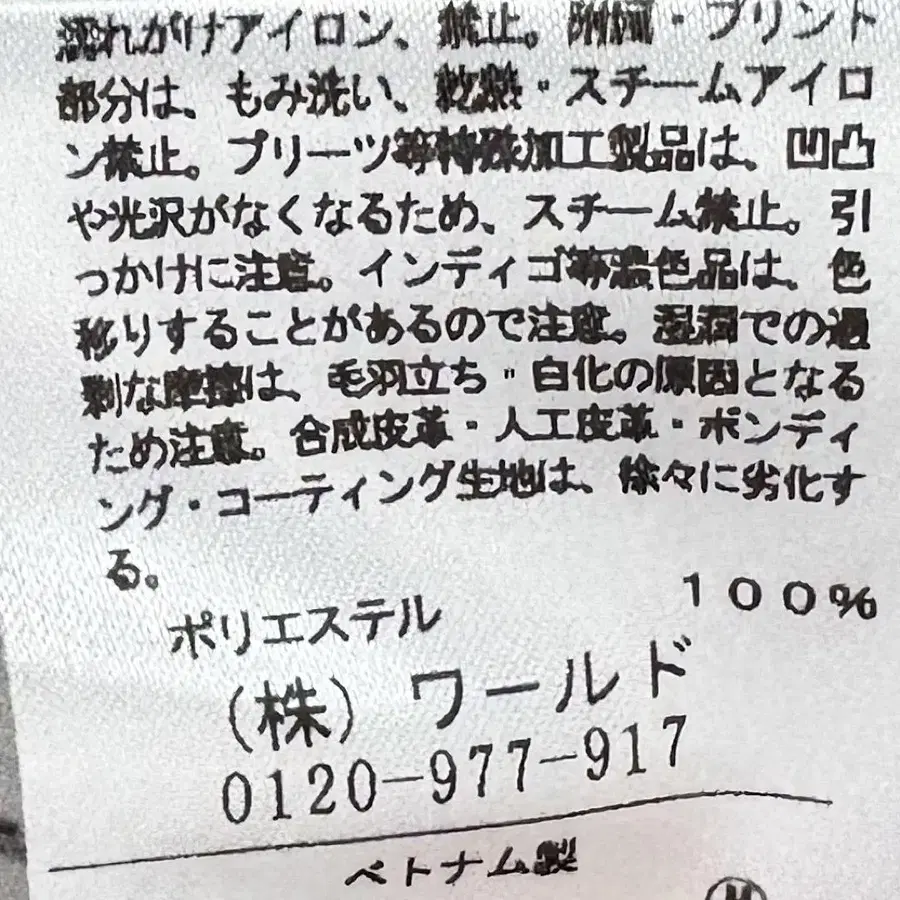 濡れがけアイロン、禁止。附属・プリント
部分は、もみ洗い、乾燥・スチームアイロ
ン禁止。プリーツ等特殊加工製品は、凹凸
や光沢がなくなるため、スチーム禁止。引
っかけに注意。インディゴ等濃色品は、色
移りすることがあるので注意。湿潤での過
剰な摩擦は、毛羽立ち・白化の原因となる
ため注意。合成皮革・人工皮革・ボンディ
ング・コーティング生地は、徐々に劣化す
る。
ポリエステル 100%
(株) ワールド
0120-977-917
ベトナム製